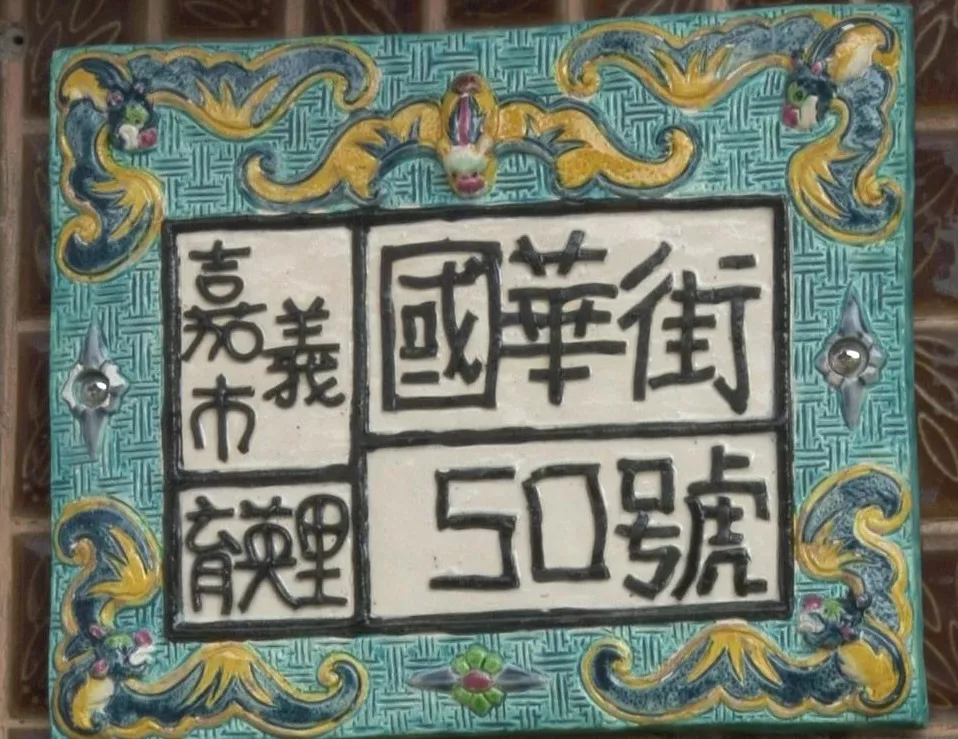 嘉義市
國華街
育英里
50號